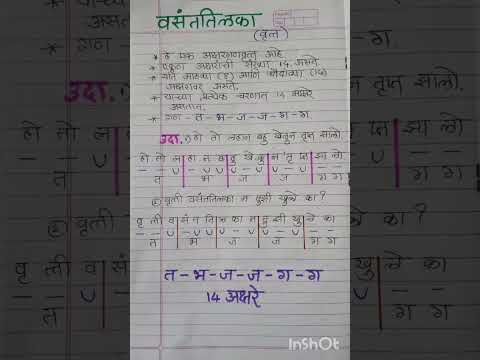 वसंततिलका
(वृत्त)
* हे एक अक्षरगणवृत्त आहे.
* एकूण अक्षरांची संख्या 14 असते.
* यति आठव्या (8) आणि चौदाव्या (14)
अक्षरावर असते.
* याच्या प्रत्येक चरणात 14 अक्षरे
असतात.
* गण - त - भ - ज - ज - ग - ग.
उदा. ① हो तो लहान बहु खेळून तृप्त झालो.
हो तो ल | हा न ब | हु खे ळू | न तृ प्त | झा लो
— — U | — U U | U — U | U — U | — —
त भ ज ज ग ग
② वृत्ती वसंततिलका न तुझी खुले का ?
वृ त्ती व | सं त ति | ल का न | तु झी खु | ले का
— — U | — U U | U — U | U — U | — —
त भ ज ज ग ग
त - भ - ज - ज - ग - ग
14 अक्षरे
InShOt